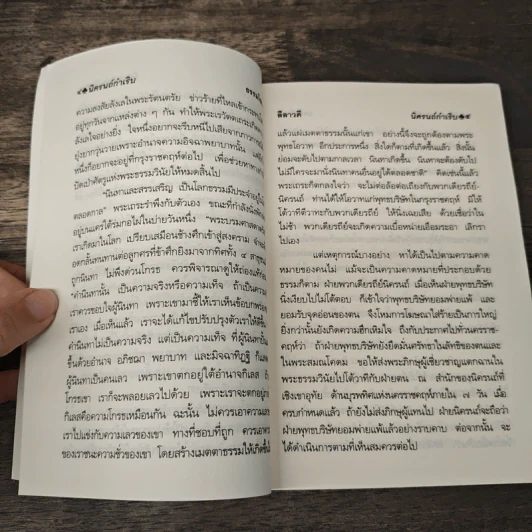 ๘♣นิครนถ์กำเริบ
ความสงสัยลังเลในพระรัตนตรัย ข่าวร้ายที่ไหลเข้า
อยู่ทุกวันจากแหล่งต่าง ๆ กัน ทำให้พระเรวัตตเถระเกิด
ลังเลใจอย่างยิ่ง ใจหนึ่งอยากจะรีบหนีไปเสียจากภาวะ
ยุ่งยากวุ่นวายเพราะอำนาจความอิจฉาพยาบาทนั้น แต่
หนึ่งก็อยากจะอยู่ที่กรุงราชคฤห์ต่อไป เพื่อช่วยหาทาง
ปัดเป่าศัตรูแห่งพระธรรมวินัยให้หมดสิ้นไป
"นินทาและสรรเสริญ เป็นโลกธรรมมีประจำอยู่ใน
ตลอดกาล" พระเถระรำพึงกับตัวเอง ขณะที่กำลังนั่งพัก
อยู่บนแคร่ใต้ร่มกอไผ่ในบ่ายวันหนึ่ง "พระบรมศาสดา
เราเกิดมาในโลก เปรียบเสมือนช้างศึกเข้าสู่สงคราม ต้อง
อดกลั้นทนทานต่อลูกศรที่ข้าศึกยิงมาจากทิศทั้ง ๔
ถูกนินทา ไม่พึงด่วนโกรธ ควรพิจารณาดูให้ถ่องแท้
คำนินทานั้น เป็นความจริงหรือความเท็จ ถ้าเป็นความ
เราควรขอบใจผู้นินทา เพราะเขามาชี้ให้เราเห็นข้อบกพร่อง
เราเอง เมื่อเห็นแล้ว เราจะได้แก้ไขปรับปรุงตัวเราให้ดีขึ้น
คำนินทาไม่เป็นความจริง แต่เป็นความเท็จ ที่ผู้นินทา
ขึ้นด้วยอำนาจ อภิชฌา พยาบาท และมิจฉาทิฏฐิ ก็แสดง
ผู้นินทาเป็นคนเลว เพราะเขาตกอยู่ใต้อำนาจกิเลส ถ้า
โกรธเขา เราก็จะพลอยเลวไปด้วย เพราะเราจะตกอยู่
กิเลสคือความโกรธเหมือนกัน ฉะนั้น ไม่ควรเอาความ
เราไปแข่งกับความเลวของเขา ทางที่ชอบที่ถูก ควรเอา
ของเราชนะความชั่วของเขา โดยสร้างเมตตาธรรมให้เกิดขึ้น
ลีลาวดี นิครนถ์กำเริบ♣๙
แล้วแผ่เมตตาธรรมนั้นแก่เขา อย่างนี้จึงจะถูกต้องตามพระ
พุทธโอวาท อีกประการหนึ่ง สิ่งใดก็ตามที่เกิดขึ้นแล้ว สิ่งนั้น
ย่อมจะดับไปตามกาลเวลา นินทาเกิดขึ้น นินทาจะต้องดับไป
ไม่มีใครจะมานั่งนินทาคนอื่นอยู่ได้ตลอดชาติ" คิดเช่นนี้แล้ว
พระเถระก็ตกลงใจว่า จะไม่ต่อล้อต่อเถียงกับพวกเดียรถีย์-
นิครนถ์ ท่านได้ให้โอวาทแก่พุทธบริษัทในกรุงราชคฤห์ มิให้
โต้วาทีตีวาทะกับพวกเดียรถีย์ ให้นิ่งเฉยเสีย ด้วยเชื่อว่าใน
ไม่ช้า พวกเดียรถีย์จะเกิดความเบื่อหน่ายเอือมระอา เลิกรา
ไปเอง
แต่เหตุการณ์บางอย่าง หาได้เป็นไปตามความคาด
หมายของคนไม่ แม้จะเป็นความคาดหมายที่ประกอบด้วย
ธรรมก็ตาม ฝ่ายพวกเดียรถีย์นิครนถ์ เมื่อเห็นฝ่ายพุทธบริษัท
นิ่งเงียบไปไม่โต้ตอบ ก็เข้าใจว่าพุทธบริษัทยอมพ่ายแพ้ และ
ยอมรับจุดอ่อนของตน จึงโหมการโฆษณาใส่ร้ายเป็นการใหญ่
ยิ่งกว่านั้นยังเกิดความฮึกเหิมใจ ถึงกับประกาศไปทั่วนคราช-
คฤห์ว่า ถ้าฝ่ายพุทธบริษัทยังยึดมั่นศรัทธาในลัทธิของตนและ
ในพระสมณโคดม ขอให้ส่งพระภิกษุผู้เชี่ยวชาญแตกฉานใน
พระธรรมวินัยไปโต้วาทีกับฝ่ายตน ณ สำนักของนิครนถ์ที่
เชิงเขาอุทัย ด้านบูรพทิศแห่งนครราชคฤห์ภายใน ๗ วัน เมื่อ
ครบกำหนดแล้ว ถ้ายังไม่ส่งภิกษุผู้แทนไป ฝ่ายนิครนถ์จะถือว่า
ฝ่ายพุทธบริษัทยอมพ่ายแพ้แล้วอย่างราบคาบ ต่อจากนั้น จะ
ได้ดำเนินการตามที่เห็นสมควรต่อไป